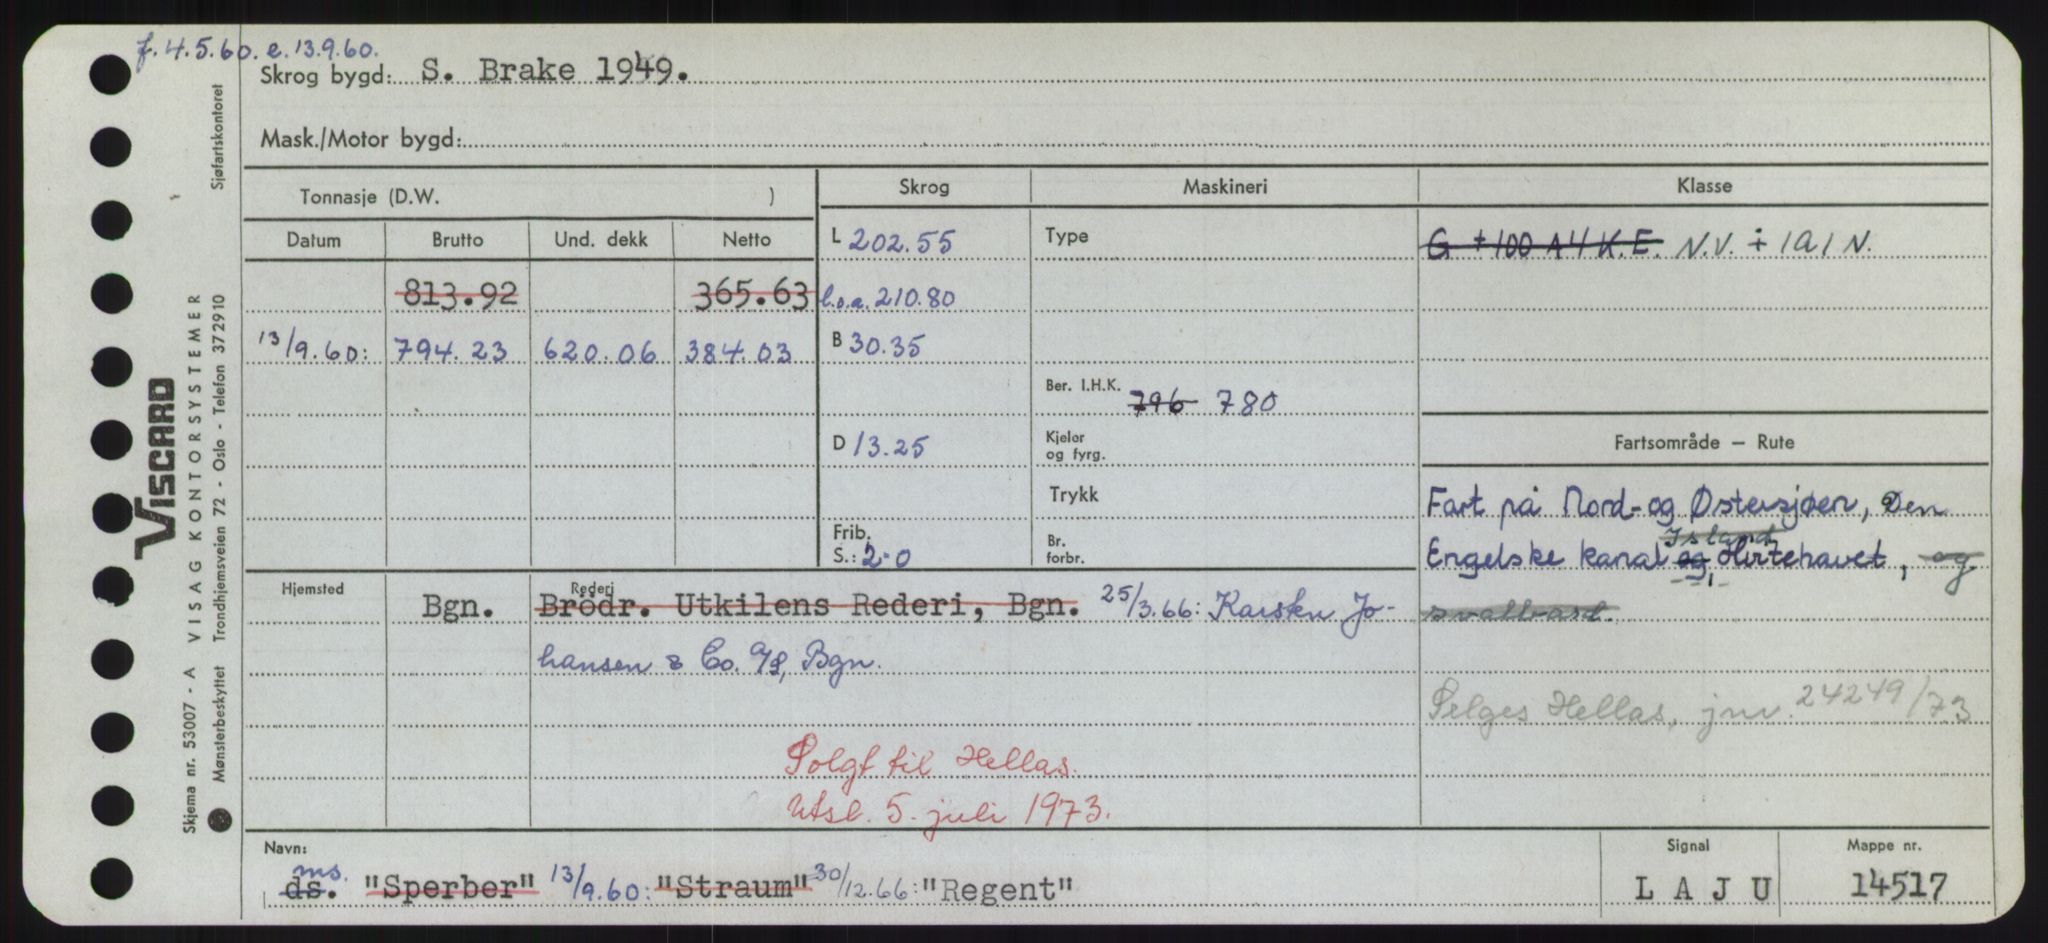 f. 4.5.60. e. 13.9.60.
Skrog bygd: S. Brake 1949.
Mask./Motor bygd:
Tonnasje (D.W. )
Skrog
Maskineri
Klasse
Datum Brutto Und. dekk Netto
L 202.55
Type
G + 100 A4 K.E. N.V. ÷ 1A1 N.
813.92 365.63
l.o.a. 210.80
13/9.60: 794.23 620.06 384.03
B 30.35
Ber. I.H.K. 796 780
D 13.25
Kjeler
og fyrg.
Fartsområde – Rute
Trykk
Fart på Nord- og Østersjøen, Den
Island
Engelske kanal og, Hvitehavet, og
Svalbard.
Frib.
S.: 2-0
Br.
forbr.
Hjemsted
Bgn.
Rederi
Brödr. Utkilens Rederi, Bgn. 25/3.66: Karsten Jo-
hansen & Co. A/S, Bgn.
Selges Hellas, jnr. 24249/73
Solgt til Hellas.
Utsl. 5. juli 1973.
Navn:
ms.
ds. "Sperber" 13/9.60: "Straum" 30/12.66: "Regent"
Signal
L A J U
Mappe nr.
14517
VISCARD
Skjema nr. 53007 - A VISAG KONTORSYSTEMER
Mønsterbeskyttet Trondhjemsveien 72 - Oslo - Telefon 37 29 10 Sjøfartskontoret